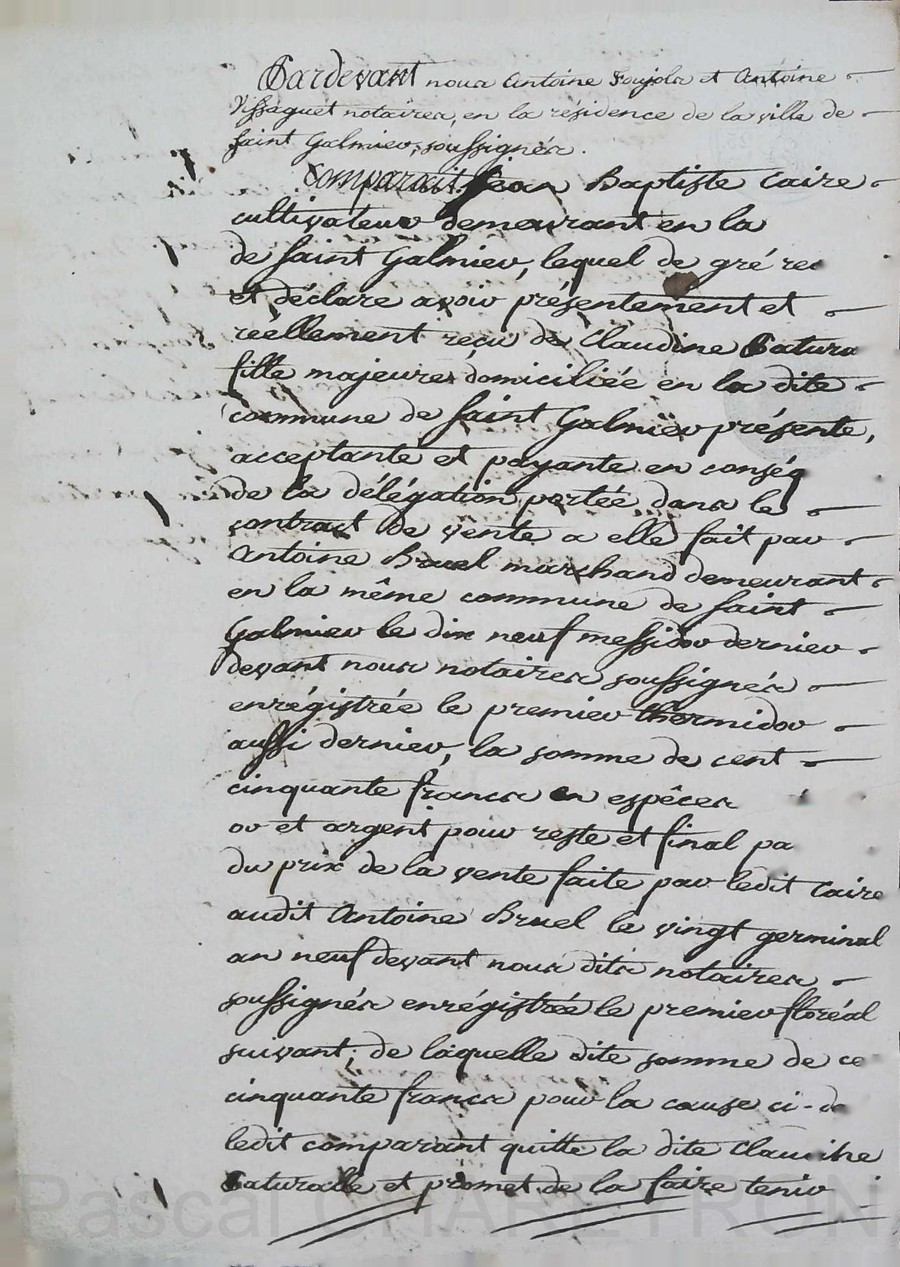 Pardevant nous Antoine Poujols et Antoine
Vissaguet notaires, en la résidence de la ville de
saint Galmier, soussignés.
Comparait Jean Baptiste Caire
cultivateur demeurant en la
de saint Galmier, lequel de gré rec
et déclare avoir présentement et
réellement reçu de Claudine Patura
fille majeure, domiciliée en la dite
commune de saint Galmier présente,
acceptante et payante en conség
de la délégation portée dans le
contract de vente a elle fait par
antoine Bruel marchand demeurant
en la même commune de saint
Galmier le dix neuf messidor dernier
devant nous notaires soussignés
enrégistrée le premier thermidor
aussi dernier, la somme de cent
cinquante francs en espêces
or et argent pour reste et final pa
du prix de la vente faite par ledit Caire
audit Antoine Bruel le vingt germinal
an neuf devant nous dits notaires
soussignés enrégistrée le premier floréal
suivant; de laquelle dite somme de ce
cinquante francs pour la cause ci-de
ledit comparant quitte la dite Claudine
Paturalle et promet de la faire tenir
Pascal CHAREYRON